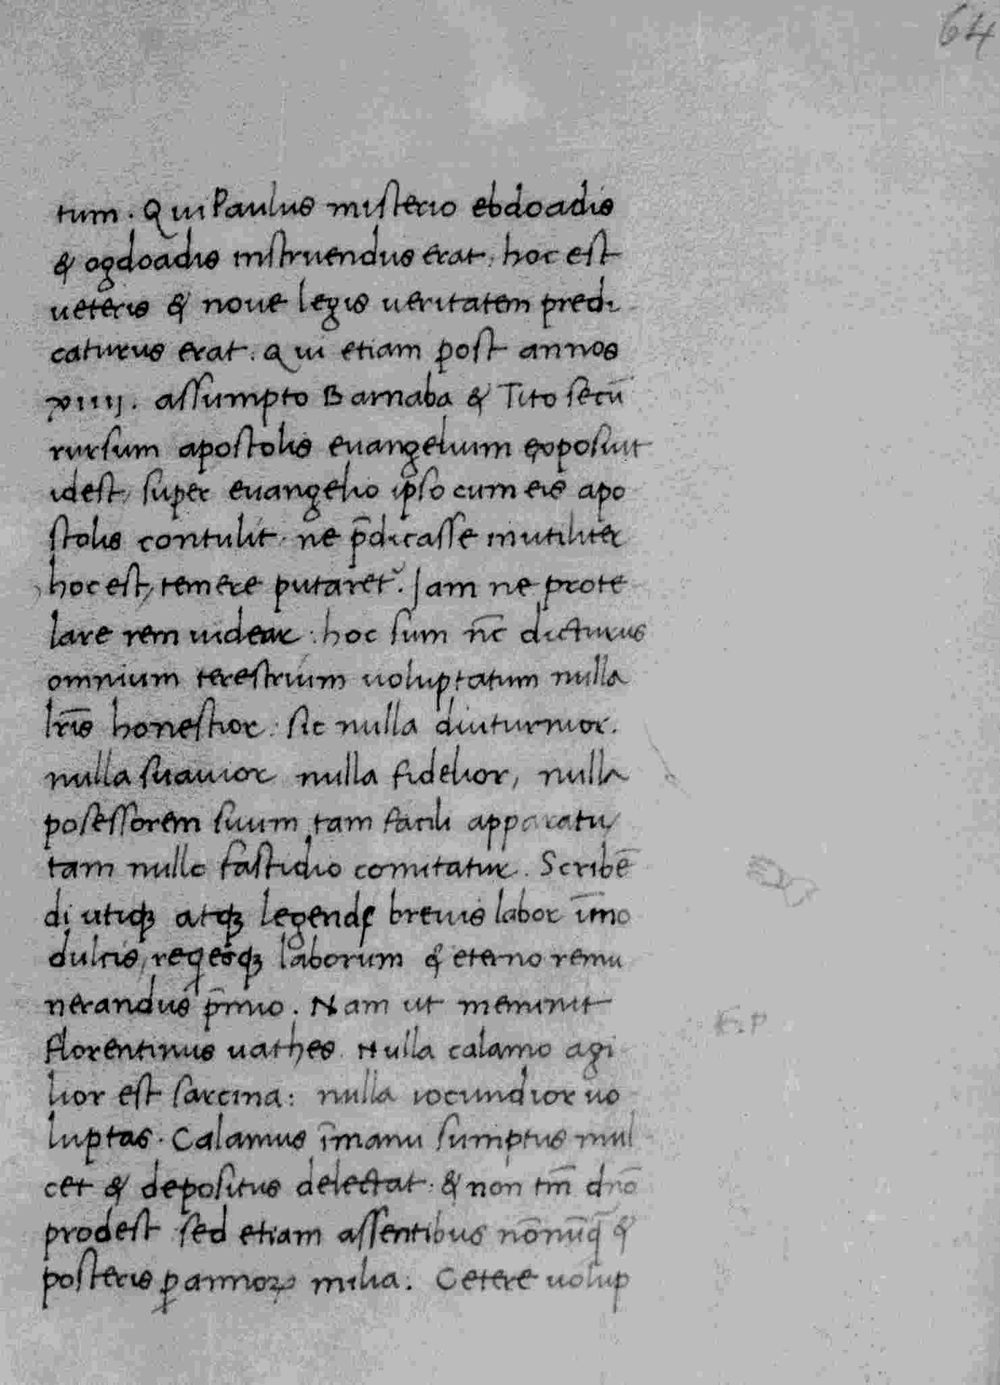 64
tum. Qui Paulus misterio ebdoadis
& ogdoadis instruendus erat. hoc est
ueteris & noue legis ueritatem predi
caturus erat. Qui etiam post annos
xiiij. assumpto Barnaba & Tito secū
rursum apostolis euangelium exposuit
idest, super euangelio ipso cum eis apo
stolis contulit. ne p̄dicasse inutiliter
hoc est, temere putaret². Iam ne prote
lare rem uidear: hoc sum nc̄ dicturus
omnium terestrium uoluptatum nulla
lr̄is honestior. sic nulla diuturnior.
nulla suauior nulla fidelior, nulla
posessorem suum tam facili apparatu
tam nullo fastidio comitatur. Scribē
di utiqꝫ atqꝫ legende breuis labor īmo
dulcis, reqesqꝫ laborum & eterno remu
nerandus p̄mio. Nam ut meminit
florentinus uathes. Nulla calamo agi
lior est sarcina: nulla iocundior uo
luptas. Calamus īmanu sumptus mul
cet & depositus delectat: & non tm̄ dnō
prodest sed etiam assentibus nōnūq̄ &
posteris ꝑ annoꝝ milia. Cetere uolup
F.P